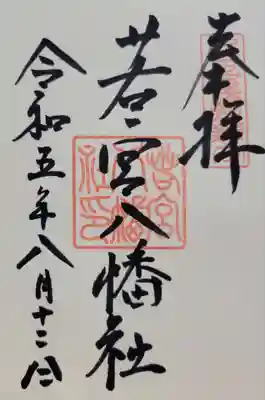 奉拝
若宮八幡社
令和五年八月十二日